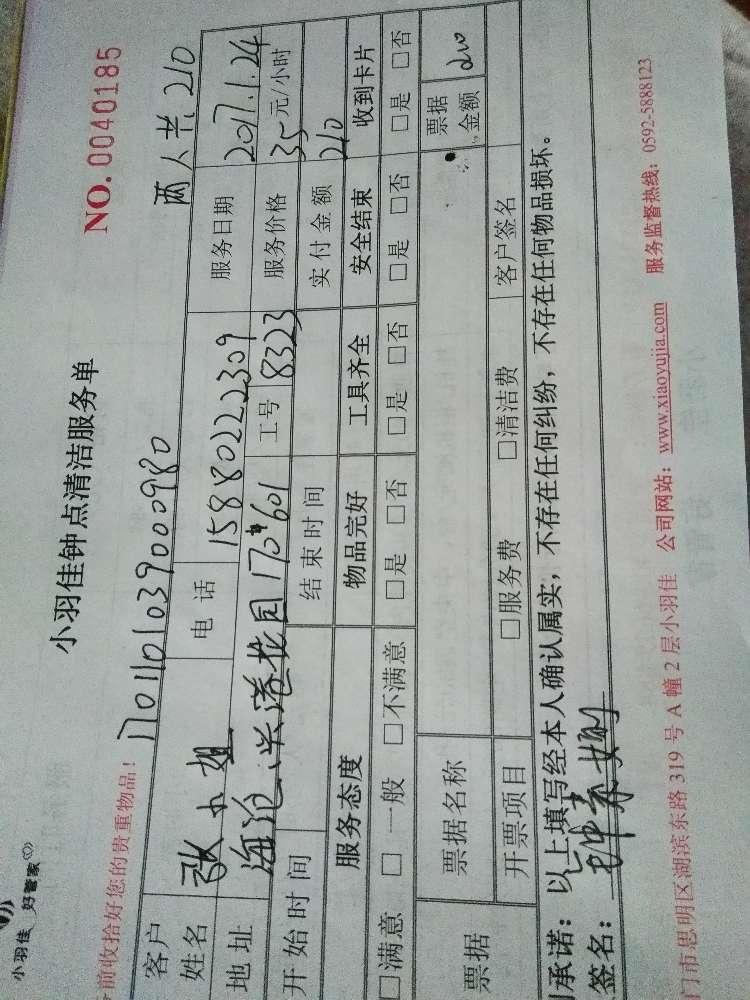 小羽佳 好管家
小羽佳钟点清洁服务单
NO.0040185
前收拾好您的贵重物品!
1701101039000980
两人共210
客户姓名 张小姐 电话 15880222309 服务日期 2017.1.24
地址 海沧 港花园170#601 工号 8323 服务价格 35元/小时
开始时间 结束时间 实付金额 210
服务态度 物品完好 工具齐全 安全结束 收到卡片
□满意 □一般 □不满意 □是 □否 □是 □否 □是 □否 □是 □否
票据 票据名称 票据金额 210
开票项目 □服务费 □清洁费 客户签名
承诺:以上填写经本人确认属实,不存在任何纠纷,不存在任何物品损坏。
签名:
门市思明区湖滨东路319号A幢2层小羽佳 公司网站:www.xiaoyujia.com 服务监督热线:0592-5888123